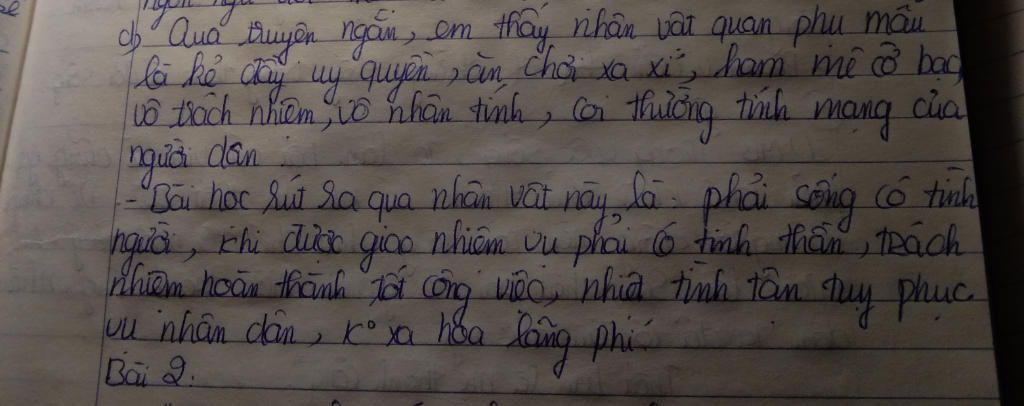 d) Qua truyện ngắn, em thấy nhân vật quan phụ mẫu
là kẻ đầy uy quyền, ăn chơi xa xỉ, ham mê cờ bạc
vô trách nhiệm, vô nhân tính, coi thường tính mạng của
người dân
- Bài học rút ra qua nhân vật này là: phải sống có tình
người, khi được giao nhiệm vụ phải có tinh thần, trách
nhiệm hoàn thành tốt công việc, nhiệt tình tận tụy phục
vụ nhân dân, k° xa hoa lãng phí.
Bài 2: